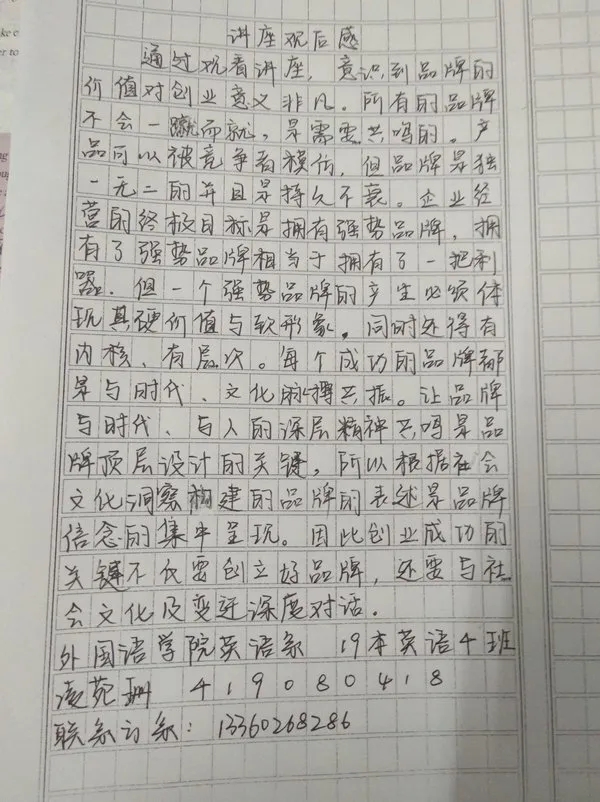 讲座观后感
通过观看讲座，意识到品牌的
价值对创业意义非凡。所有的品牌
不会一蹴而就，是需要共鸣的。产
品可以被竞争者模仿，但品牌是独
一无二的并且是持久不衰。企业经
营的终极目标是拥有强势品牌，拥
有了强势品牌相当于拥有了一把利
器。但一个强势品牌的产生必须体
现其硬价值与软形象。同时还得有
内核、有层次。每个成功的品牌都
是与时代、文化脉搏共振。让品牌
与时代、与人的深层精神共鸣是品
牌顶层设计的关键，所以根据社会
文化洞察构建的品牌的表述是品牌
信念的集中呈现。因此创业成功的
关键不仅要创立好品牌，还要与社
会文化及变迁深度对话。
外国语学院英语系 19本英语4班
苑珊 419080418
联系方式：13360268286
ke c
er to
ng